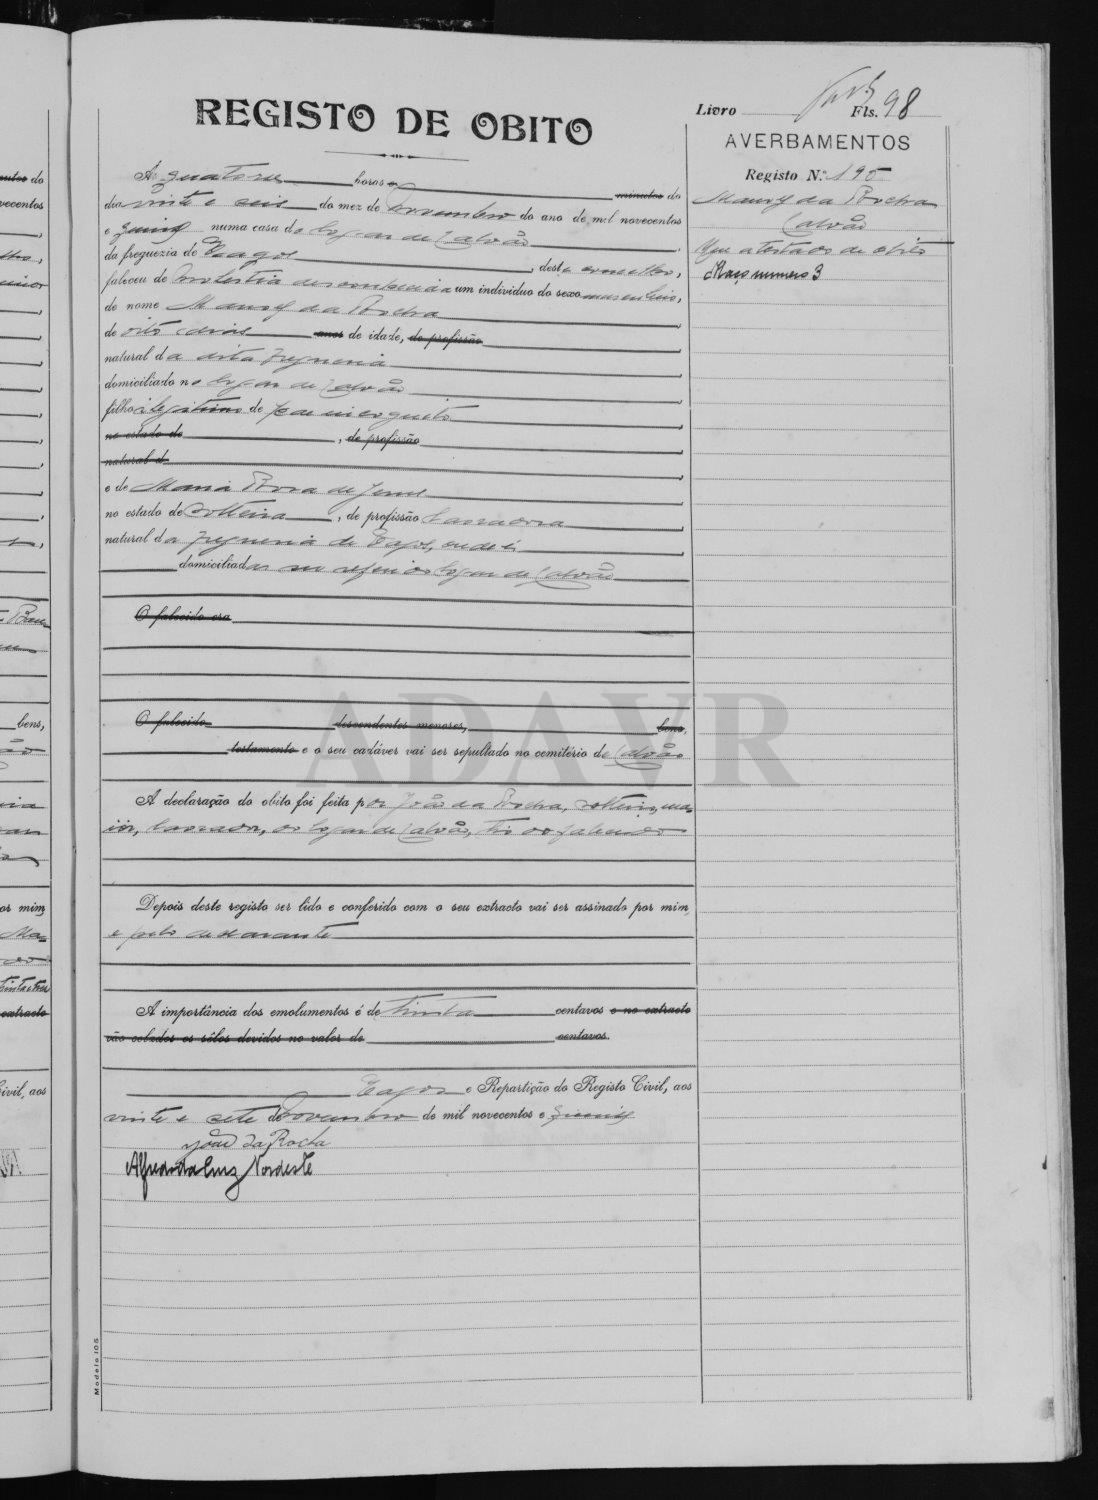 REGISTO DE OBITO
Livro Fls. 98
AVERBAMENTOS
Registo N.º 195
Manoel da Rocha
Calvão
Um atestado de obito
Maço numero 3
Às quatorze horas e minutos do
dia vinte e seis do mez de Novembro do ano de mil novecentos
e numa casa do logar de Calvão
da freguezia de Vagos, deste concelho,
faleceu de molestia desconhecida um individuo do sexo masculino,
de nome Manoel da Rocha
de oito dias anos de idade, de profissão
natural da dita freguezia
domiciliado no logar de Calvão
filho ilegitimo de pae incognito
no estado de , de profissão
natural d
e de Maria Rosa de Jesus
no estado de solteira, de profissão lavradora
natural da freguezia de Vagos, onde é
domiciliada no referido logar de Calvão
O falecido era
O falecido descendentes menores, bens,
testamento e o seu cadáver vai ser sepultado no cemitério de Calvão
A declaração do obito foi feita por João da Rocha, solteiro, ma-
ior, lavrador, do logar de Calvão, tio do falecido
Depois deste registo ser lido e conferido com o seu extracto vai ser assinado por mim,
e pelo declarante
A importância dos emolumentos é de trinta centavos e no extracto
vão colados os sêlos devidos no valor de centavos.
Vagos e Repartição do Registo Civil, aos
vinte e sete de Novembro de mil novecentos e
João da Rocha
Alfredo da Cruz Nordeste
Modelo 105
ADAVR